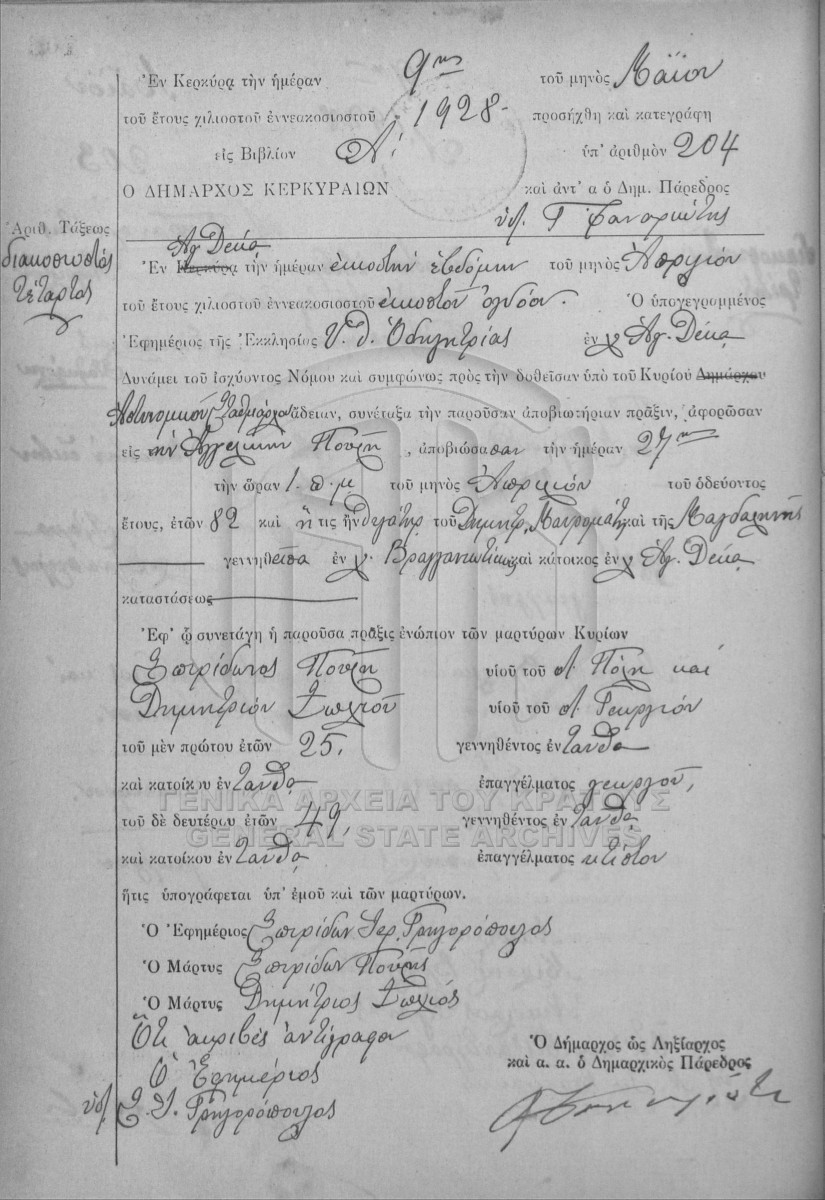 Ἐν Κερκύρᾳ τὴν ἡμέραν 9ην τοῦ μηνὸς Μαΐου
τοῦ ἔτους χιλιοστοῦ ἐννεακοσιοστοῦ 1928 προσήχθη καὶ κατεγράφη
εἰς Βιβλίον Α΄. ὑπ' ἀριθμὸν 204
Ο ΔΗΜΑΡΧΟΣ ΚΕΡΚΥΡΑΙΩΝ καὶ ἀντ' α ὁ Δημ. Πάρεδρος
ὑπ. Γ Φαναριώτης
Ἀριθ. Τάξεως
διακοσιοστός
τέταρτος
Ἁγ. Δέκα
Ἐν Κερκύρᾳ τὴν ἡμέραν εἰκοστὴν ἑβδόμην τοῦ μηνὸς Ἀπριλίου
τοῦ ἔτους χιλιοστοῦ ἐννεακοσιοστοῦ εἰκοστοῦ ὀγδόου. Ὁ ὑπογεγραμμένος
Ἐφημέριος τῆς Ἐκκλησίας Υ. Θ. Ὁδηγητρίας ἐν χ Ἁγ. Δέκα
Δυνάμει τοῦ ἰσχύοντος Νόμου καὶ συμφώνως πρὸς τὴν δοθεῖσαν ὑπὸ τοῦ Κυρίου Δημάρχου
Ἀστυνομικοῦ Σταθμάρχου ἄδειαν, συνέταξα τὴν παροῦσαν ἀποβιωτήριαν πρᾶξιν, ἀφορῶσαν
εἰς τὴν Ἀγγελικὴν Πουλῆ, ἀποβιώσασαν τὴν ἡμέραν 27ην
τὴν ὥραν 1. π.μ τοῦ μηνὸς Ἀπριλίου τοῦ ὁδεύοντος
ἔτους, ἐτῶν 82 καὶ ἥτις ἦν θυγάτηρ τοῦ Δημητρ. Μαυρομάτη καὶ τῆς Μαγδαληνῆς
γεννηθεῖσα ἐν χ. Βραγγανιώτικα καὶ κάτοικος ἐν χ Ἁγ. Δέκα
καταστάσεως
Ἐφ' ᾧ συνετάγη ἡ παροῦσα πρᾶξις ἐνώπιον τῶν μαρτύρων Κυρίων
Σπυρίδωνος Πουλῆ υἱοῦ τοῦ Πολη καὶ
Δημητρίου Σωλιοῦ υἱοῦ τοῦ Γεωργίου
τοῦ μὲν πρώτου ἐτῶν 25, γεννηθέντος ἐνταῦθα
καὶ κατοίκου ἐνταῦθα ἐπαγγέλματος γεωργοῦ,
τοῦ δὲ δευτέρου ἐτῶν 49, γεννηθέντος ἐνταῦθα
καὶ κατοίκου ἐνταῦθα ἐπαγγέλματος κτίστου
ἥτις ὑπογράφεται ὑπ' ἐμοῦ καὶ τῶν μαρτύρων.
Ὁ Ἐφημέριος Σπυρίδων Ἱερ. Γρηγορόπουλος
Ὁ Μάρτυς Σπυρίδων Πουλῆς
Ὁ Μάρτυς Δημήτριος Σωλιός
Ὅτι ἀκριβὲς ἀντίγραφον
Ὁ Ἐφημέριος
ὑπ. Σ. Ι. Γρηγορόπουλος
Ὁ Δήμαρχος ὡς Ληξίαρχος
καὶ α. α. ὁ Δημαρχικὸς Πάρεδρος
ΓΕΝΙΚΑ ΑΡΧΕΙΑ ΤΟΥ ΚΡΑΤΟΥΣ
GENERAL STATE ARCHIVES